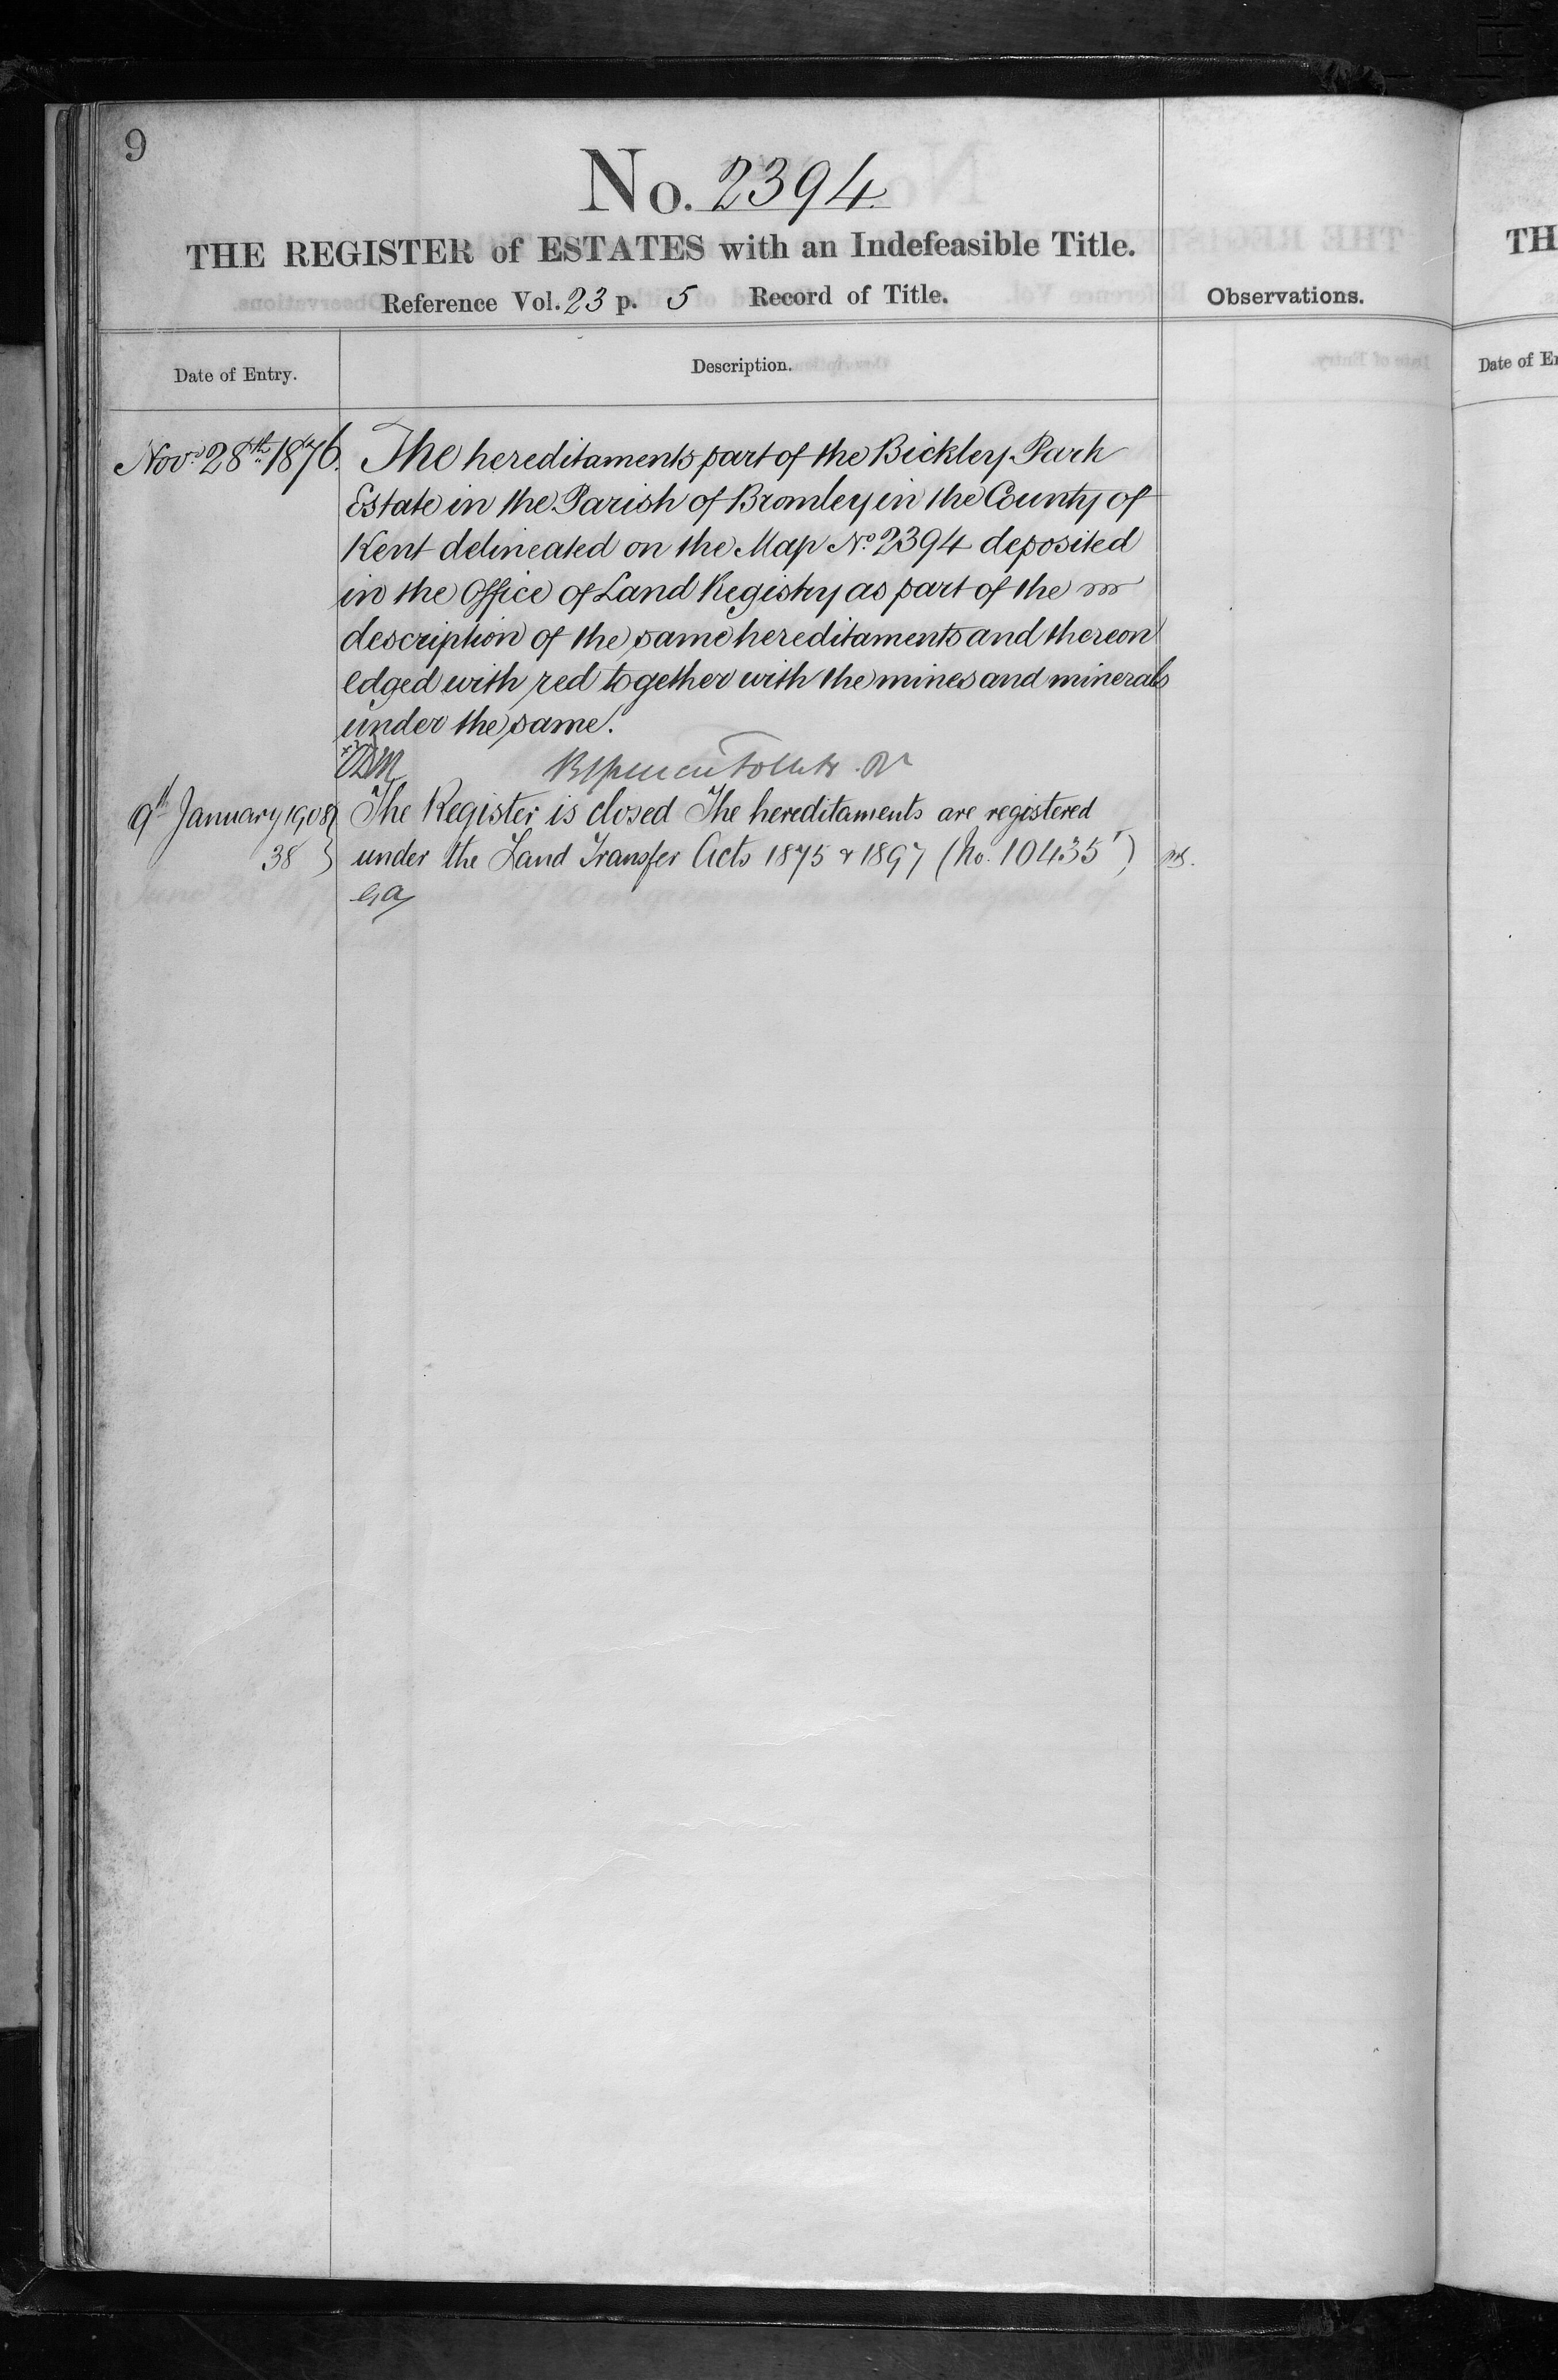 9
No. 2394
THE REGISTER of ESTATES with an Indefeasible Title.
Reference Vol. 23 p. 5 Record of Title.
Observations.
Date of Entry.
Description.
Novr 28th 1876. The hereditaments part of the Bickley Park
Estate in the Parish of Bromley in the County of
Kent delineated on the Map No. 2394 deposited
in the Office of Land Registry as part of the
description of the same hereditaments and thereon
edged with red together with the mines and minerals
under the same.
9th January 1908 The Register is closed The hereditaments are registered
38 under the Land Transfer Acts 1875 & 1897 (No. 10435)
TH
Date of En